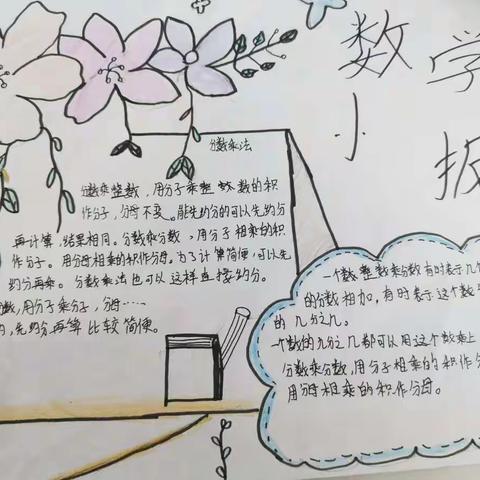 数学
小
报
分数乘法
分数乘整数，用分子乘整数的积
作分子，分母不变。能先约分的可以先约分
再计算，结果相同。分数乘分数，用分子相乘的积
作分子。用分母相乘的积作分母。为了计算简便，可以先
约分再乘。分数乘法也可以这样直接约分。
数，用分子乘分子，分母……
，先约分再算比较简便。
一个数整数乘分数有时表示几个
的分数相加，有时表示这个数
的几分之几。
一个数的几分之几都可以用这个数乘上
分数乘分数，用分子相乘的积作分
用分母相乘的积作分母。